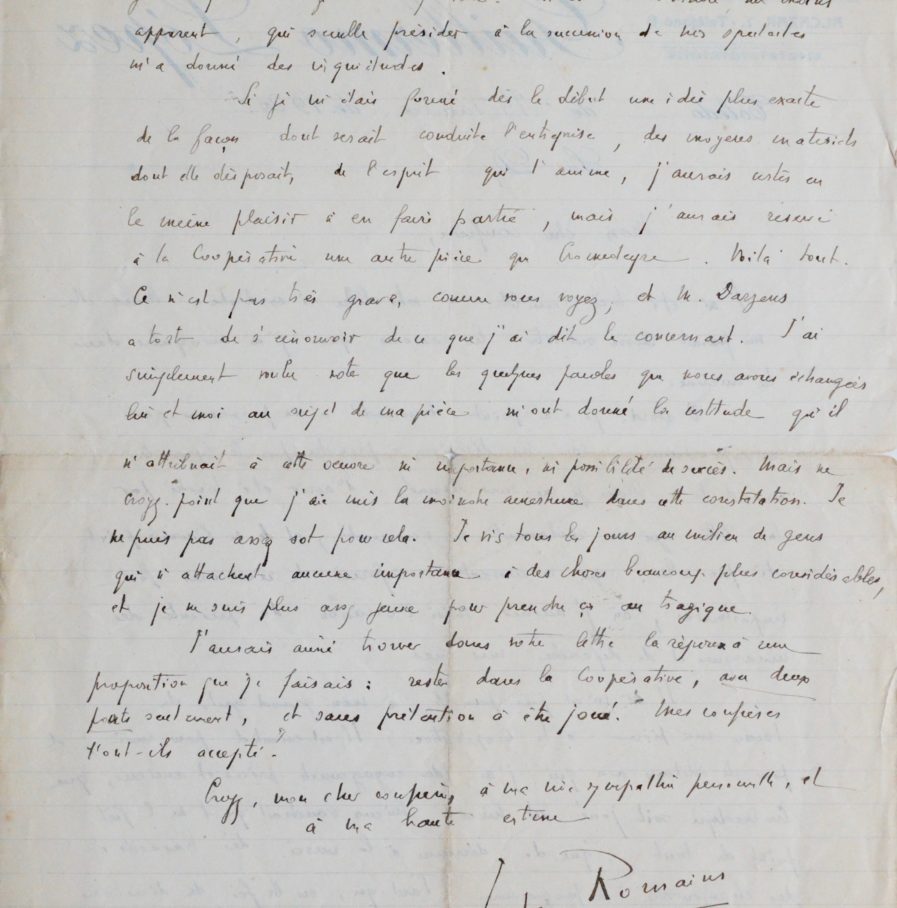 apparent, qui semble présider à la succession de nos spectacles
m'a donné des inquiétudes.
Si je m'étais formé dès le début une idée plus exacte
de la façon dont serait conduite l'entreprise, des moyens matériels
dont elle disposait, de l'esprit qui l'anime, j'aurais
le même plaisir à en faire partie, mais j'aurais réservé
à la Coopérative une autre pièce que Cromedeyre. Voilà tout.
Ce n'est pas très grave, comme vous voyez, et M. Darzens
a tort de s'émouvoir de ce que j'ai dit le concernant. J'ai
simplement voulu noter que les quelques paroles que nous avons échangées
lui et moi au sujet de ma pièce m'ont donné la certitude qu'il
n'attribuait à cette oeuvre ni importance, ni possibilité de succès. Mais ne
croyez point que j'aie mis la moindre amertume dans cette constatation. Je
ne suis pas assez sot pour cela. Je vis tous les jours au milieu de gens
qui n'attachent aucune importance à des choses beaucoup plus considérables,
et je ne suis plus assez jeune pour prendre ça au tragique.
J'aurais aimé trouver dans votre lettre la réponse à une
proposition que je faisais : rester dans la Coopérative, avec deux
parts seulement, et sans prétention à être joué. Mes confrères
l'ont-ils acceptée.
Croyez, mon cher confrère, à ma vive sympathie personnelle, et
à ma haute estime
Romains